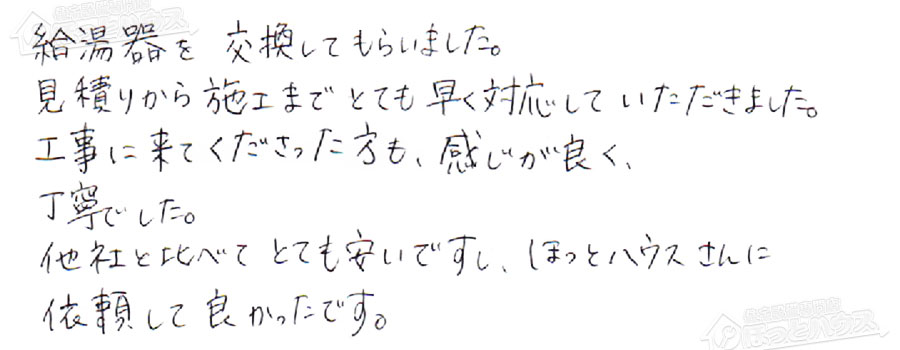 給湯器を 交換してもらいました。
見積りから施工までとても早く対応していただきました。
工事に来てくださった方も、感じが良く、
丁寧でした。
他社と比べてとても安いですし、ほっとハウスさんに
依頼して良かったです。
ほっとハウス